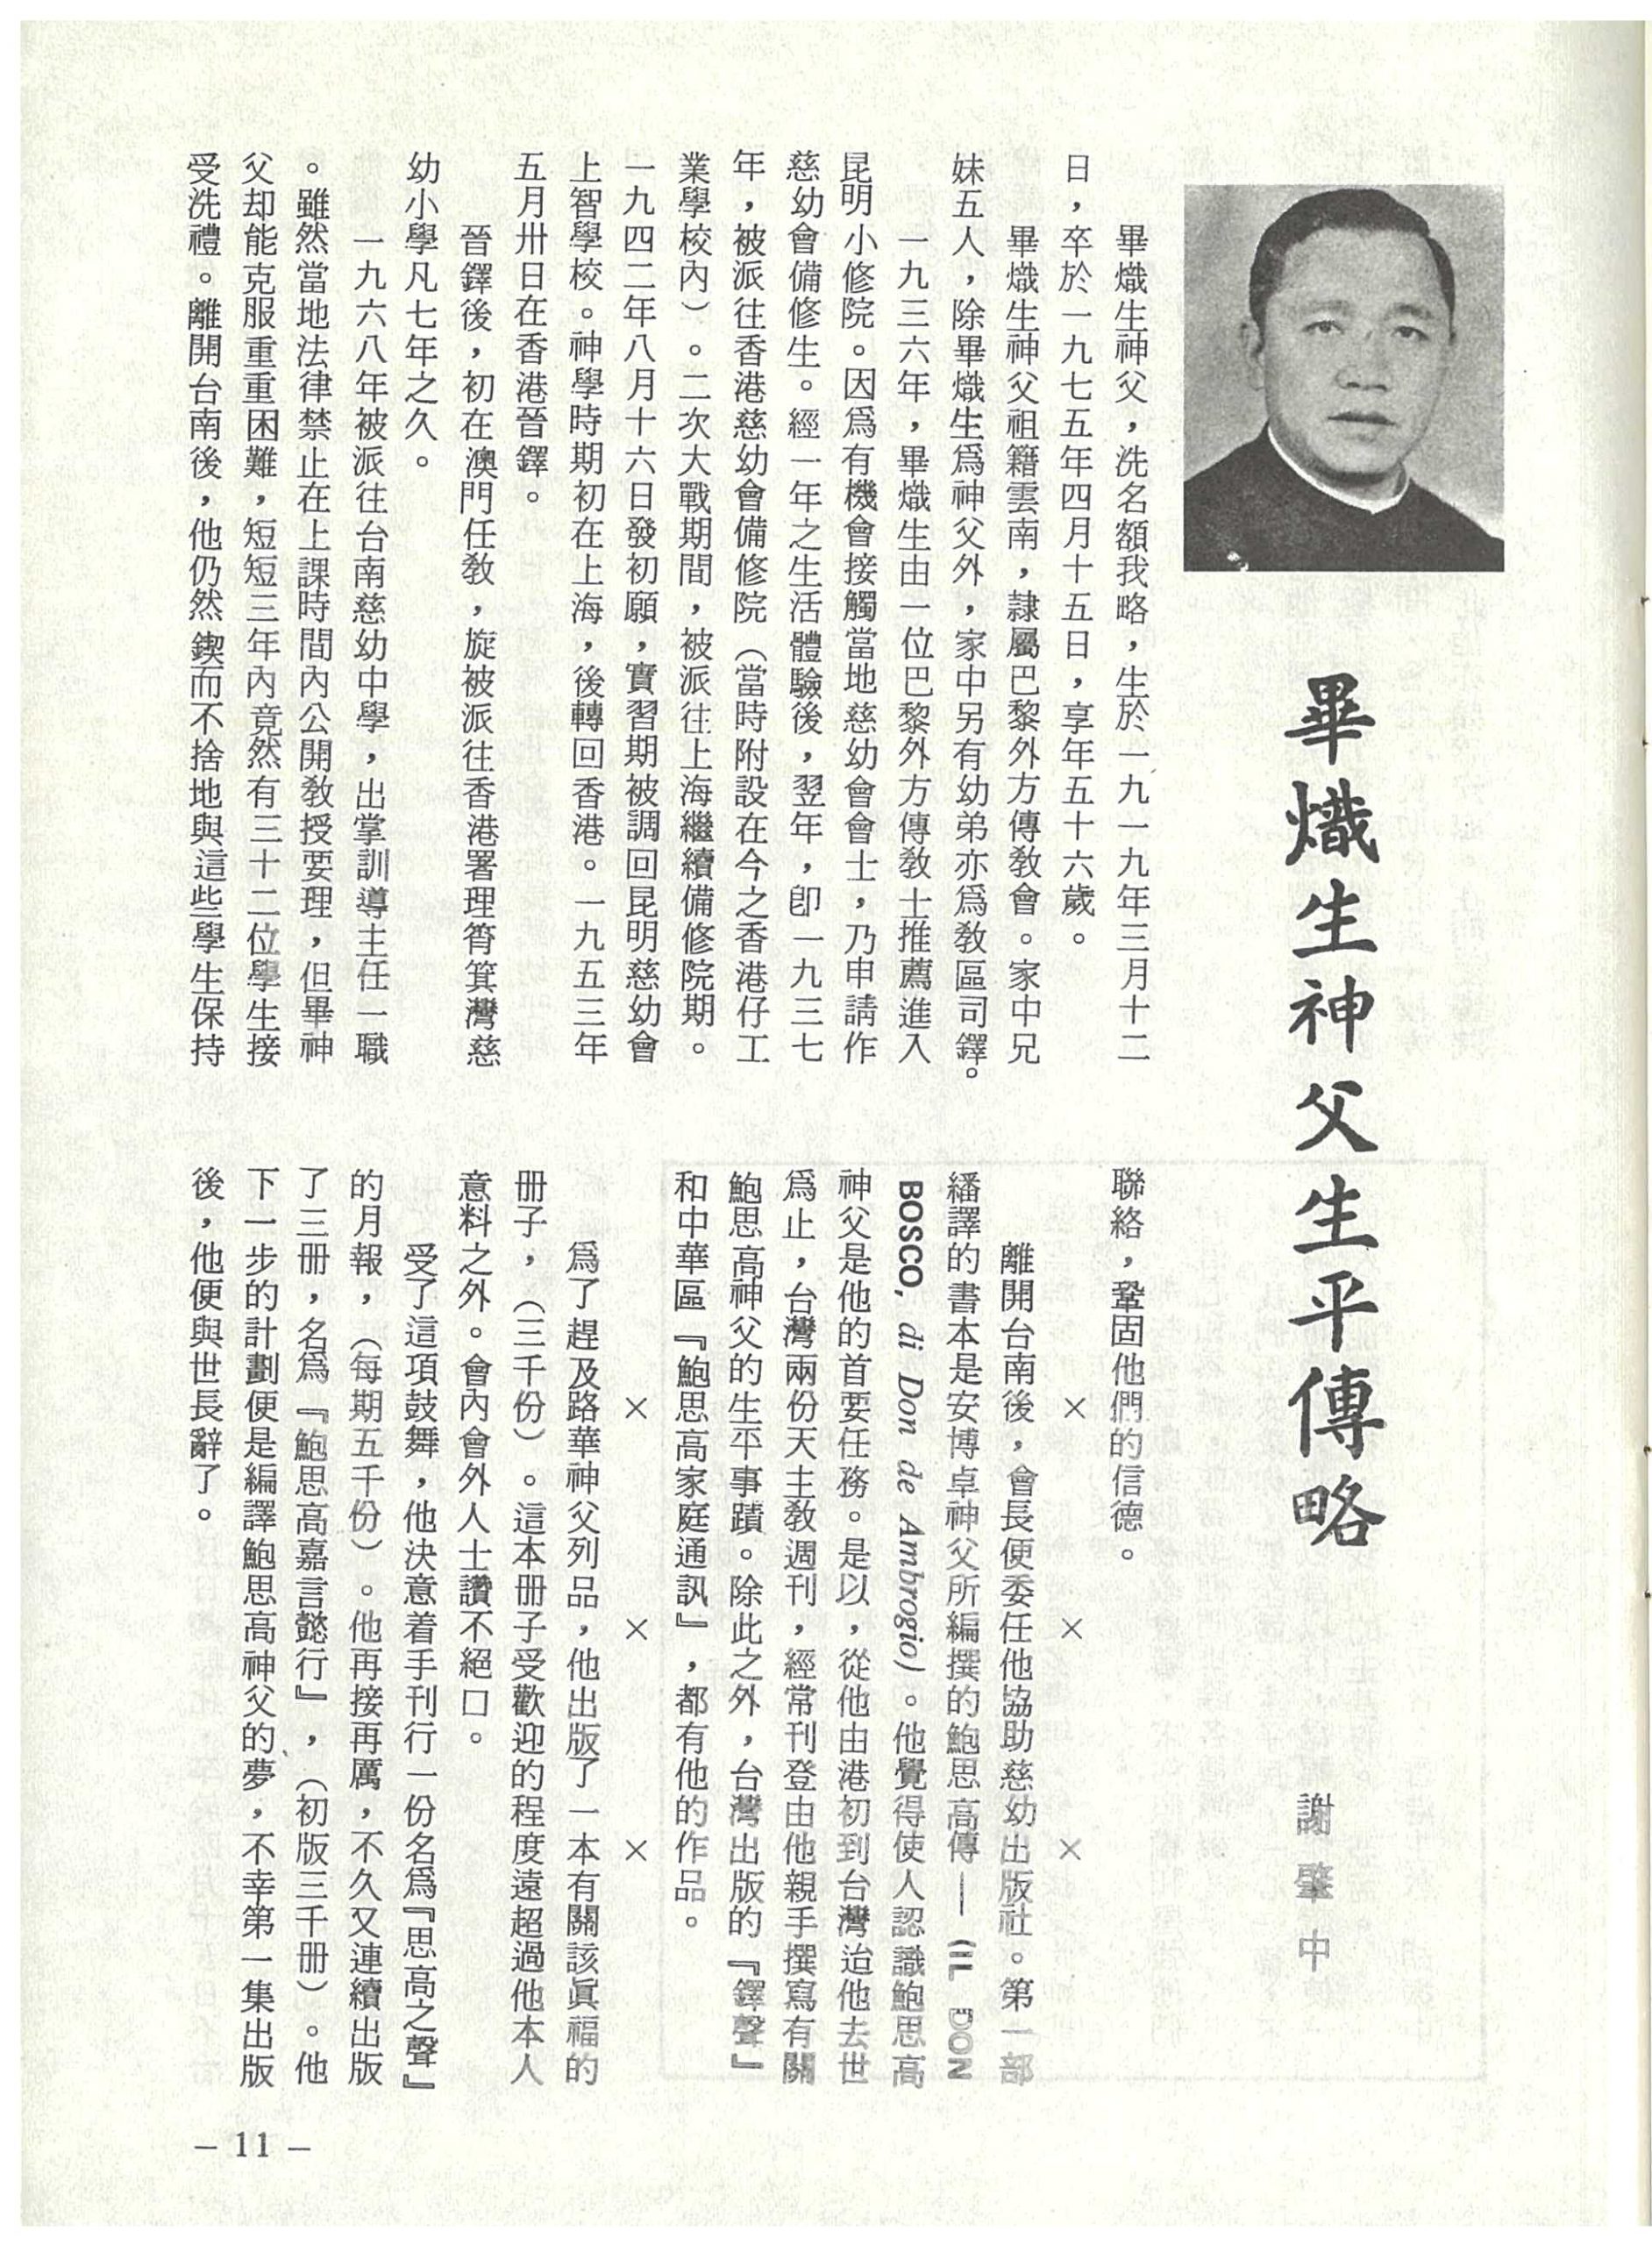 畢熾生神父生平傳略
謝肇中
畢熾生神父，洗名額我略，生於一九一九年三月十二
日，卒於一九七五年四月十五日，享年五十六歲。
畢熾生神父祖籍雲南，隷屬巴黎外方傳敎會。家中兄
妹五人，除畢熾生爲神父外，家中另有幼弟亦爲敎區司鐸。
一九三六年，畢熾生由一位巴黎外方傳敎士推薦進入
昆明小修院。因爲有機會接觸當地慈幼會會士，乃申請作
慈幼會備修生。經一年之生活體驗後，翌年，卽一九三七
年，被派往香港慈幼會備修院（當時附設在今之香港仔工
業學校內）。二次大戰期間，被派往上海繼續備修院期。
一九四二年八月十六日發初願，實習期被調回昆明慈幼會
上智學校。神學時期初在上海，後轉回香港。一九五三年
五月卅日在香港晉鐸。
晉鐸後，初在澳門任敎，旋被派往香港署理筲箕灣慈
幼小學凡七年之久。
一九六八年被派往台南慈幼中學，出掌訓導主任一職
。雖然當地法律禁止在上課時間內公開敎授要理，但畢神
父却能克服重重困難，短短三年內竟然有三十二位學生接
受洗禮。離開台南後，他仍然鍥而不捨地與這些學生保持
聯絡，鞏固他們的信德。
×　×　×
離開台南後，會長便委任他協助慈幼出版社。第一部
繙譯的書本是安博卓神父所編撰的鮑思高傳——(IL DON
BOSCO, di Don de Ambrogio)。他覺得使人認識鮑思高
神父是他的首要任務。是以，從他由港初到台灣治他去世
爲止，台灣兩份天主敎週刊，經常刊登由他親手撰寫有關
鮑思高神父的生平事蹟。除此之外，台灣出版的『鐸聲』
和中華區『鮑思高家庭通訊』，都有他的作品。
×　×　×
爲了趕及路華神父列品，他出版了一本有關該眞福的
册子，（三千份）。這本册子受歡迎的程度遠超過他本人
意料之外。會內會外人士讚不絕口。
受了這項鼓舞，他決意着手刊行一份名爲『思高之聲』
的月報，（每期五千份）。他再接再厲，不久又連續出版
了三册，名爲『鮑思高嘉言懿行』，（初版三千册）。他
下一步的計劃便是編譯鮑思高神父的夢，不幸第一集出版
後，他便與世長辭了。
– 11 –